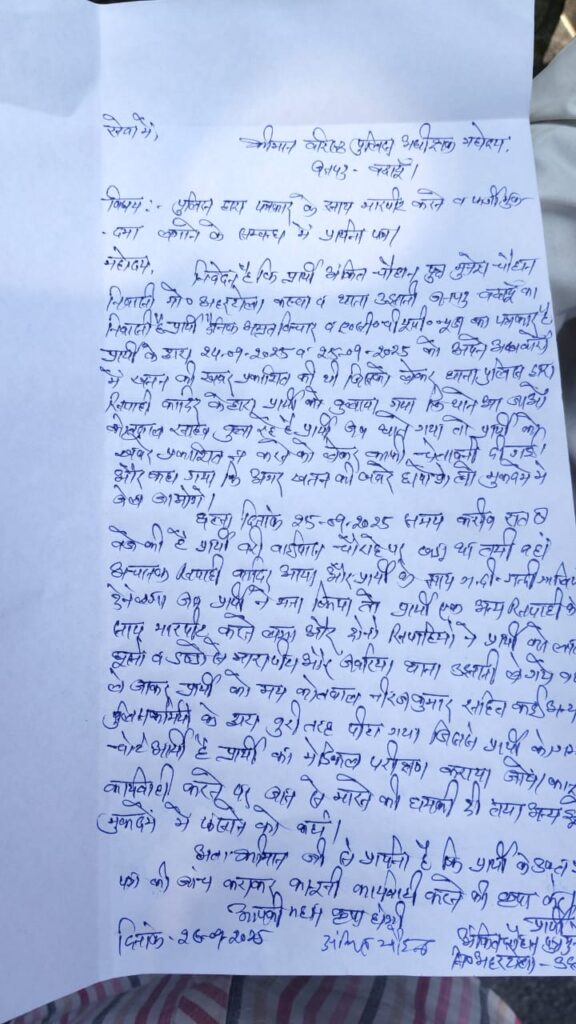 सेवा में,
श्रीमान वरिष्ठ पुलिस अधीक्षक महोदय,
जनपद - बदायूँ।
विषय:- पुलिस द्वारा पत्रकार के साथ मारपीट करने व फर्जी मुक
-दमा लगाने के सम्बन्ध में प्रार्थना पत्र।
महोदय,
निवेदन है कि प्रार्थी अंकित चौहान पुत्र मुनेश चौहान
निवासी मो० अहरटोला कस्बा व थाना उझानी जनपद बदायूँ का
निवासी है प्रार्थी दैनिक अमृत विचार व का पत्रकार है
प्रार्थी के द्वारा 24-09-2025 व 25-09-2025 को अपने अखबार
में खनन की खबर प्रकाशित की थी जिसको लेकर थाना पुलिस द्वारा
सिपाही कादिर के द्वारा प्रार्थी को बुलाया गया कि थाने आ जाओ
कोतवाल साहब बुला रहे है प्रार्थी जब थाने गया तो प्रार्थी को
खबर प्रकाशित न करने को लेकर काफी चेतावनी दी गई।
और कहा गया कि अगर खनन की खबर छापोगे तो मुकदमे में
जेल जाओगे।
घटना दिनांक 25-09-2025 समय करीब रात 8
बजे की है प्रार्थी बरी बाईपास चौराहे पर खड़ा था तभी वहां
अचानक सिपाही कादिर आया और प्रार्थी के साथ गन्दी-गन्दी
देने लगा जब प्रार्थी ने मना किया तो प्रार्थी एक अन्य सिपाही के
साथ मारपीट करने लगा और दोनो सिपाहियो ने प्रार्थी को
घूसो व डण्डो से मारापीटा और जबरिया थाना उझानी ले गये
ले जाकर प्रार्थी को मय कोतवाल नीरज कुमार सहित कई अन्य
पुलिसकर्मियो के द्वारा बुरी तरह पीटा गया जिससे प्रार्थी के
चोटे आयी है प्रार्थी का मेडिकल परीक्षण कराया जाये।
कार्यवाही करने पर जान से मारने की धमकी दी तथा अन्य
मुकदमे में फंसाने को कहा।
अतः श्रीमान जी से प्रार्थना है कि प्रार्थी के
पत्र की जांच कराकर कानूनी कार्यवाही करने की कृपा करें
आपकी महान कृपा होगी
प्रार्थी
दिनांक- 26-9-2025 अंकित चौहान अंकित चौहान पुत्र
नि० अहरटोला -